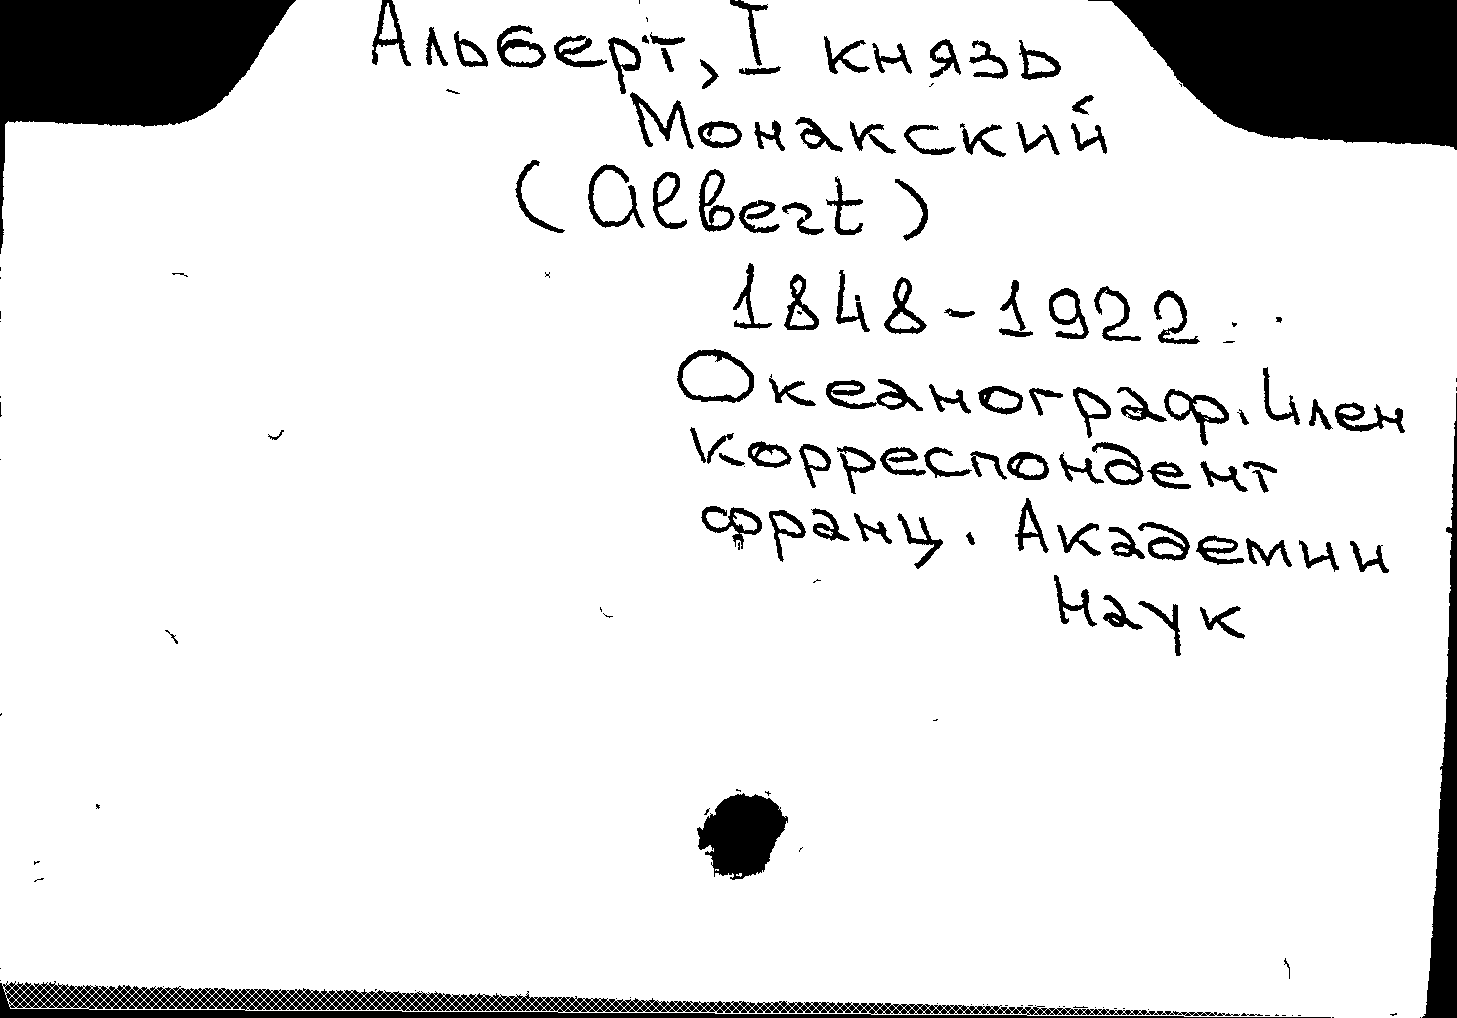 Альберт, I князь
Монакский
(Albert)
1848-1922
Океанограф. Член
корреспондент
франц. Академии
Наук